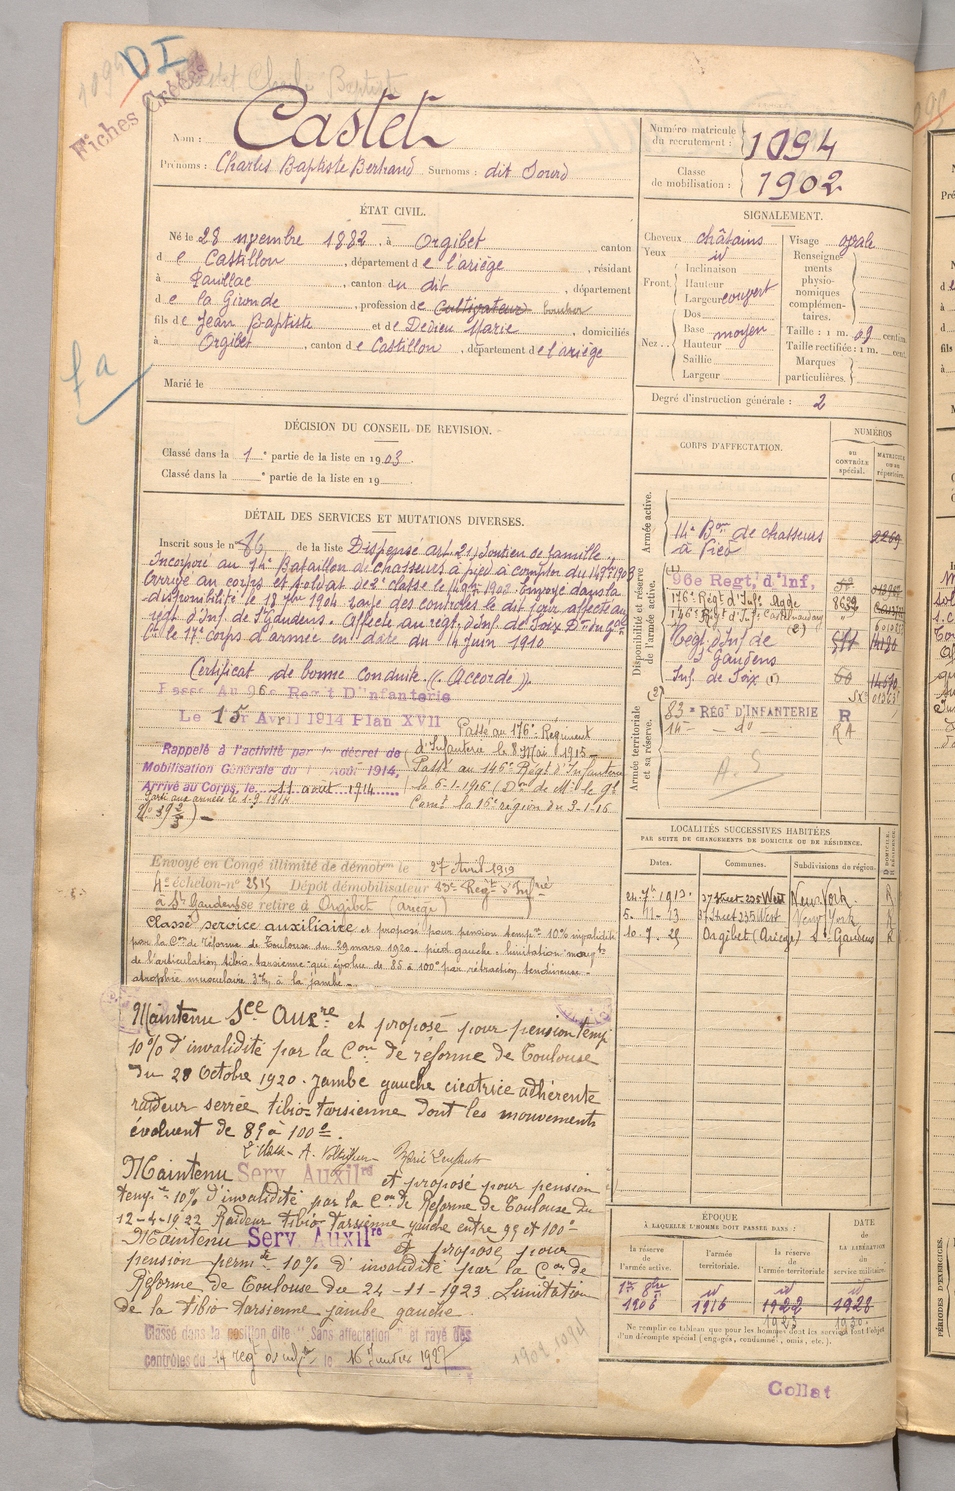 DI
Fiches Créées
Nom : Castet
Prénoms : Charles Baptiste Bertrand Surnoms : dit Sourd
Numéro matricule du recrutement : 1094
Classe de mobilisation : 1902
ÉTAT CIVIL.
Né le 28 novembre 1882, à Orgibet canton
de Castillon, département de l'ariège, résidant
à Pauillac, canton du dit, département
de la Gironde, profession de Cultivateur boucher
fils de Jean Baptiste et de Dedieu Marie, domiciliés
à Orgibet, canton de Castillon, département de l'ariège
Marié le
SIGNALEMENT.
Cheveux châtains Visage ovale
Yeux
Front. Inclinaison
Hauteur
Largeur couvert
Nez.. Dos
Base moyen
Hauteur
Saillie
Largeur
Renseignements physionomiques complémentaires.
Taille : 1 m. 69 centim.
Taille rectifiée : 1 m. cent.
Marques particulières.
Degré d'instruction générale : 2
fa
DÉCISION DU CONSEIL DE REVISION.
Classé dans la 1e partie de la liste en 1903.
Classé dans la e partie de la liste en 19
DÉTAIL DES SERVICES ET MUTATIONS DIVERSES.
Inscrit sous le n° 86 de la liste Dispensé art. 21, soutien de famille.
Incorporé au 14e Bataillon de chasseurs à pied à compter du 14 1903
Arrivé au corps et soldat de 2e classe le 1903. Envoyé dans la
disponibilité le 18 7bre 1904 rayé des contrôles le dit jour affecté au
régt d'Inf. de St Gaudens. Affecté au régt. d'Inf. de Foix Don du Gal
Ct le 17e corps d'armée en date du 14 Juin 1910
Certificat de bonne conduite. "Accordé".
Passé Au 96e Regi't D'Infanterie
Le 1er Avril 1914 Plan XVII
Passé au 176e Régiment
d'Infanterie le 8 Mai 1915 -
Passé au 146e Régt d'Infanterie
le 6-1-1916 (Don de Mr le Gl
Comt la 16e région du 3-1-16
Rappelé à l'activité par le décret de
Mobilisation Générale du 1 Août 1914,
Arrivé au Corps, le 11 août 1914
Parti aux armées le 1-9-1914
Envoyé en Congé illimité de démobon le 27 Avril 1919
4e échelon n° 2515 Dépôt démobilisateur 83e Régt d'Infrie
à St Gaudens se retire à Orgibet (Ariège)
Classé service auxiliaire et proposé pour pension tempre 10% invalidité
par la Con de réforme de Toulouse du 29 mars 1920 - pied gauche : limitation
de l'articulation tibio-tarsienne qui évolue de 85 à 100° par rétraction tendineuse -
atrophie musculaire 3% à la jambe -
Maintenu Sce Auxre et proposé pour pension temp
10% d'invalidité par la Con de réforme de Toulouse
du 28 Octobre 1920. Jambe gauche cicatrice adhérente
raideur serrée tibio-tarsienne dont les mouvements
évoluent de 85 à 100°.
Maintenu Serv. Auxilre et proposé pour pension
tempre 10% d'invalidité par la Con de Réforme de Toulouse du
12-4-1922 Raideur tibio-tarsienne gauche entre 95 et 100°
Maintenu Serv. Auxilre et proposé pour
pension permte 10% d'invalidité par la Con de
Réforme de Toulouse du 24-11-1923 Limitation
de la tibio tarsienne jambe gauche
Classé dans la position dite "Sans affectation" et rayé des
contrôles du 14 regt d'infie le 16 Janvier 1927
1902 1094
CORPS D'AFFECTATION.
NUMÉROS
AU CONTRÔLE spécial.
MATRICULE OU AU répertoire.
Armée active.
14e Bon de chasseurs
à pied
Disponibilité et réserve de l'armée active.
96e Regt, d'Inf,
176e Régt d'Inf. Agde
146e Régt d'Inf. Castelnaudary (2)
Regt d'Inf de
St Gaudens
Inf. de Foix (1)
Armée territoriale et sa réserve.
83e RÉGt D'INFANTERIE R
14e - do - RA
LOCALITÉS SUCCESSIVES HABITÉES
PAR SUITE DE CHANGEMENTS DE DOMICILE OU DE RÉSIDENCE.
Dates. Communes. Subdivisions de région. D. DOMICILE. R. RÉSIDENCE
21.7bre 1913. 37 Street 235 West New-York R
5-11-13 37 Street 235 West New York R
10.7.25 Orgibet (Ariège) St Gaudens R
ÉPOQUE
À LAQUELLE L'HOMME DOIT PASSER DANS :
DATE DE LA LIBÉRATION du service militaire.
la réserve de l'armée active. l'armée territoriale. la réserve de l'armée territoriale
1906 1916 1922 1928
1923 1930
Ne remplir ce tableau que pour les hommes dont les services font l'objet
d'un décompte spécial (engagés, condamnés, omis, etc.).
Collat
PÉRIODES D'EXERCICES.